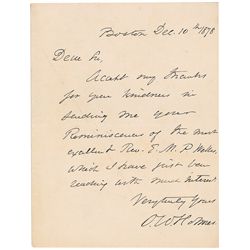 Boston Dec. 10th 1878
Dear Sir,
Accept my thanks
for your kindness in
sending me your
Reminiscences of the most
excellent Rev. E. M. P. Wells
which I have just been
reading with much interest
Very truly Yours
O. W. Holmes